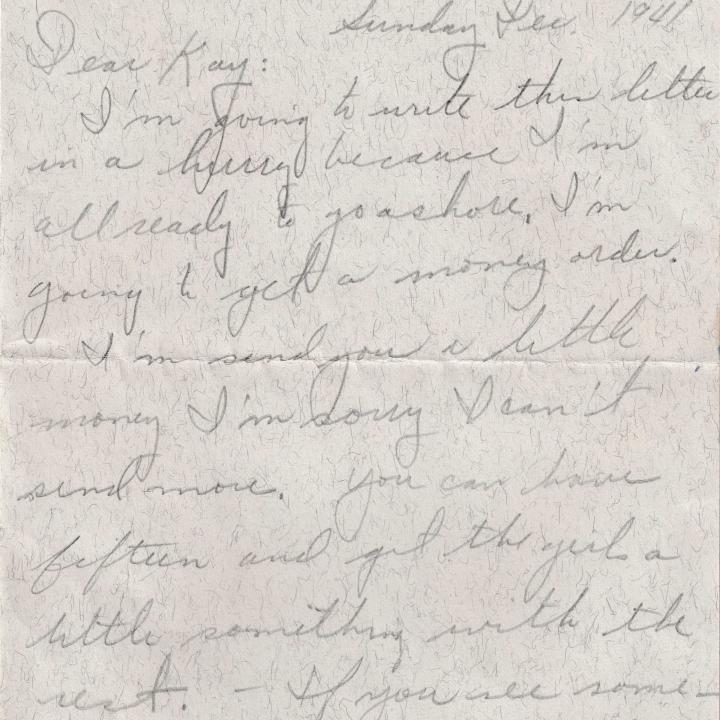 Sunday Dec. 1941
Dear Kay:
I'm going to write this letter
in a hurry because I'm
all ready to go ashore, I'm
going to get a money order.
I'm send you a little
money I'm sorry I can't
send more. You can have
fifteen and get the girls a
little something with the
rest. - If you see some-